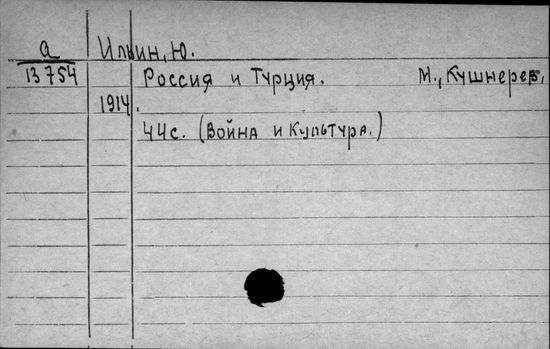 а Ильин, Ю.
13754 Россия и Турция. М., Кушнерев,
1914.
44с. (Война и Культура.)